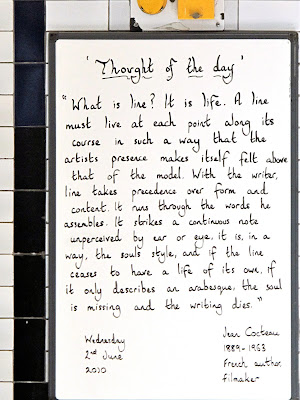 ' Thought of the day '
" What is line? It is life. A line
must live at each point along its
course in such a way that the
artists presence makes itself felt above
that of the model. With the writer,
line takes precedence over form and
content. It runs through the words he
assembles. It strikes a continuous note
unperceived by ear or eye. it is, in a
way, the souls style, and if the line
ceases to have a life of its own, if
it only describes an arabesque, the soul
is missing and the writing dies. "
Wednesday
2nd June
2010
Jean Cocteau
1889-1963
French author,
filmaker